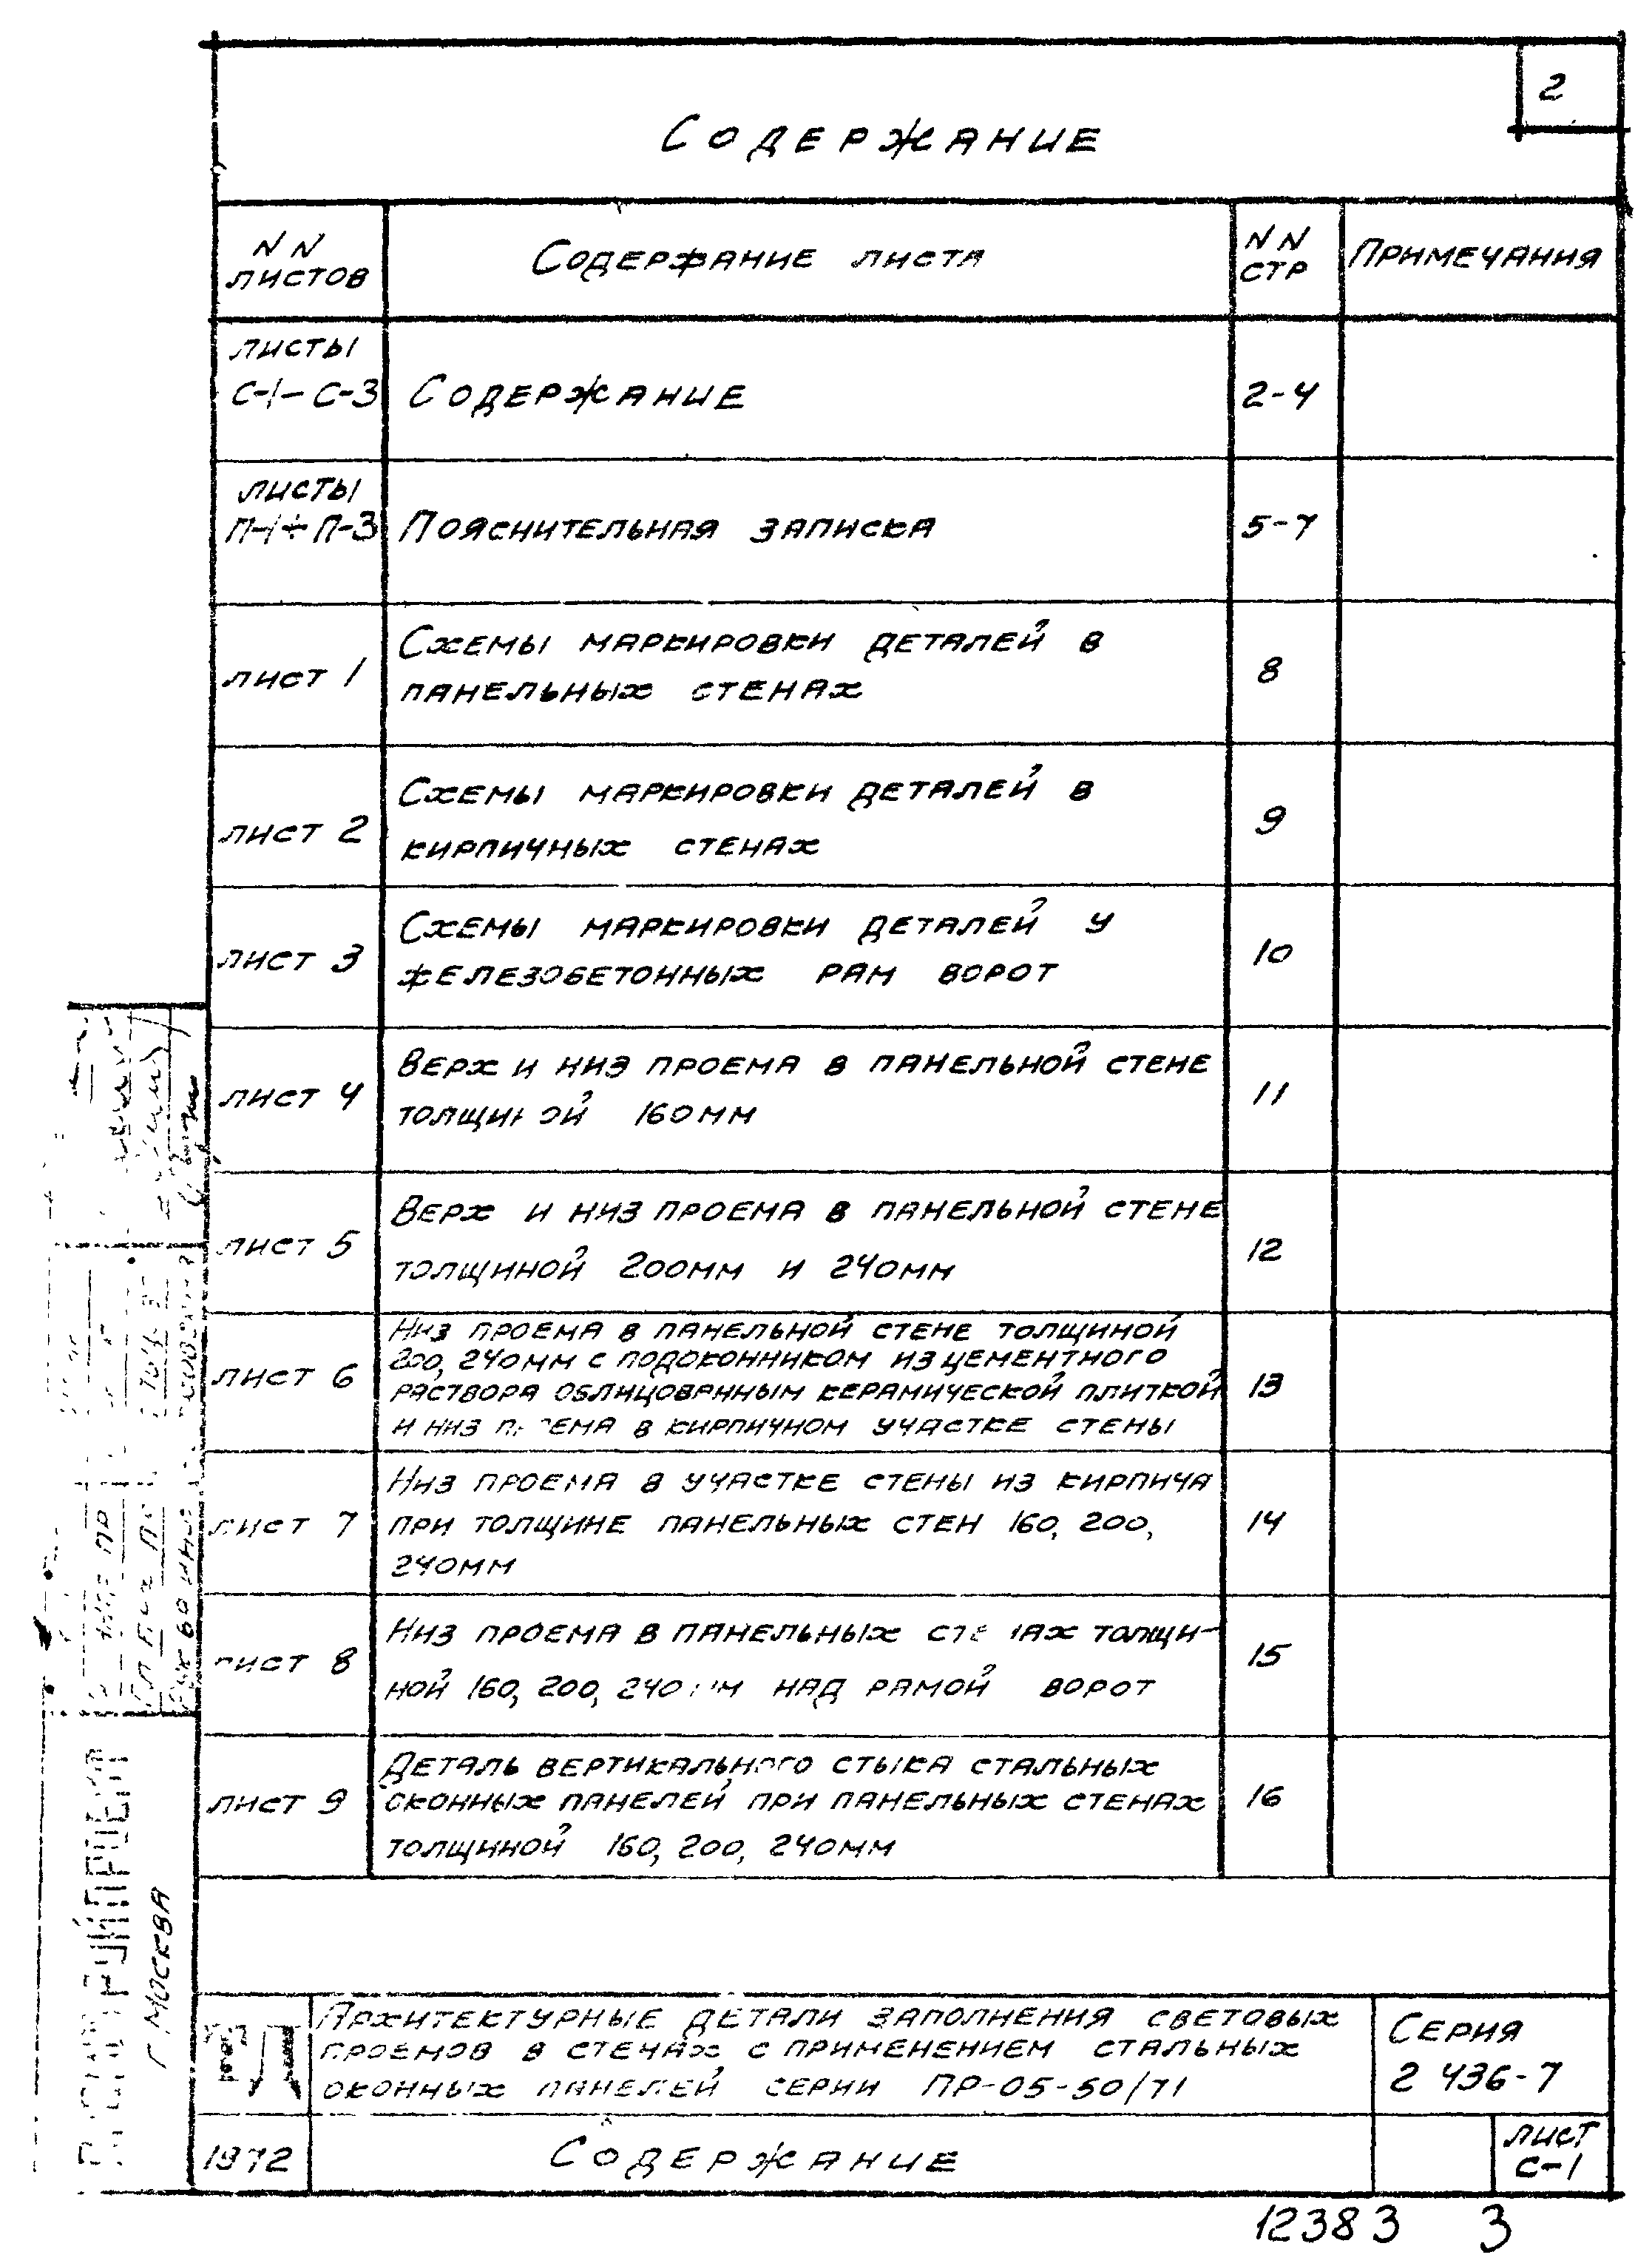 2
Содержание
NN листов
Содержание листа
NN стр
Примечания
листы
С-1-С-3
Содержание
2-4
листы
П-1÷П-3
Пояснительная записка
5-7
лист 1
Схемы маркировки деталей в
панельных стенах
8
лист 2
Схемы маркировки деталей в
кирпичных стенах
9
лист 3
Схемы маркировки деталей у
железобетонных рам ворот
10
лист 4
Верх и низ проема в панельной стене
толщиной 160мм
11
лист 5
Верх и низ проема в панельной стене
толщиной 200мм и 240мм
12
лист 6
Низ проема в панельной стене толщиной
200, 240мм с подоконником из цементного
раствора облицованным керамической плиткой
и низ проема в кирпичном участке стены
13
лист 7
Низ проема в участке стены из кирпича
при толщине панельных стен 160, 200,
240мм
14
лист 8
Низ проема в панельных стенах толщи-
ной 160, 200, 240мм над рамой ворот
15
лист 9
Деталь вертикального стыка стальных
оконных панелей при панельных стенах
толщиной 160, 200, 240мм
16
г. Москва
ТД
Архитектурные детали заполнения световых
проемов в стенах с применением стальных
оконных панелей серии ПР-05-50/71
Серия
2 436-7
1972
Содержание
лист
С-1
12383 3